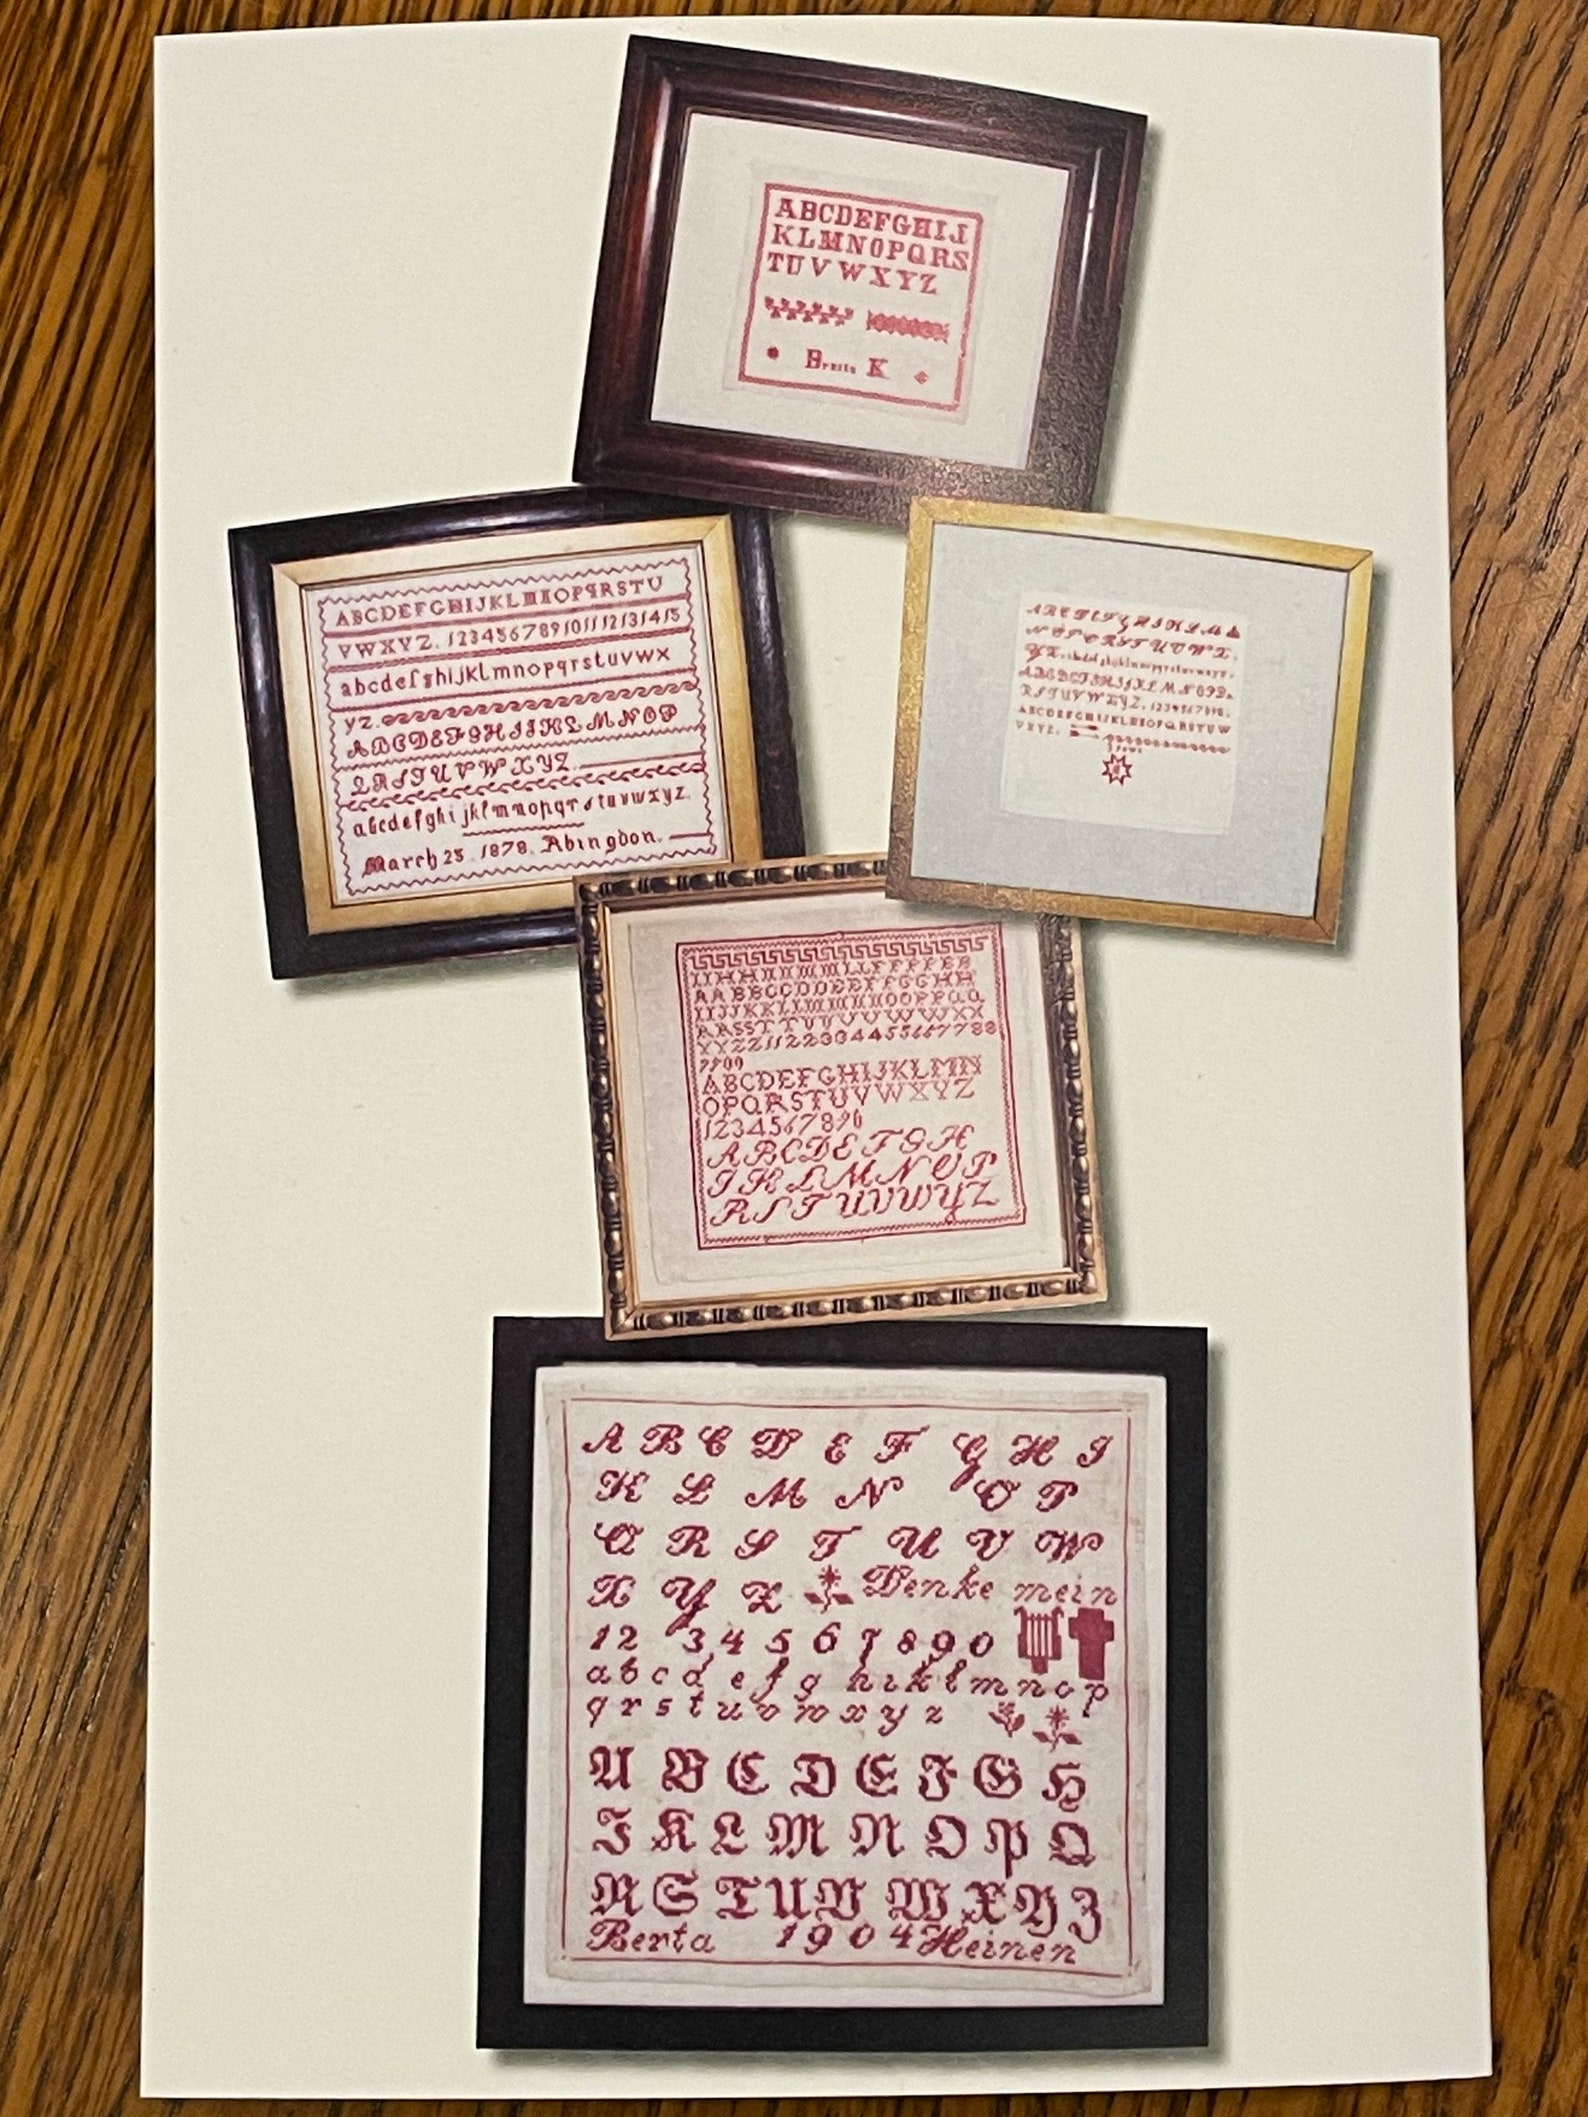 ABCDEFGHIJ
KLMNOPQRS
TUVWXYZ
K
ABCDEFGHIJKLMNOPQRSTU
VWXYZ. 123456789101112131415
abcdefghijklmnopqrstuvwx
yz.
ABCDEFGHIJKLMNOP
QRSTUVWXYZ.
abcdefghijklmnopqrstuvwxyz.
March 25. 1878. Abingdon.
ABCDEFGHIJKLM&
NOPQRSTUVWX.
YZ.
RSTUVWXYZ. 12345678
ABCDEFGHIJKLMNOPQRSTUVW
VXYZ.
AABBCCDDEEFFGGHH
IIJJKKLLMMNNOOPPQQ
RRSSTTUUVVWWXX
YYZZ1122334455667788
9900
ABCDEFGHIJKLMN
OPQRSTUVWXYZ
1234567890
ABCDEFGH
IKLMNOP
RSTUVWYZ
A B C D E F G H I
K L M N O P
Q R S T U V W
X Y Z Denke mein
1 2 3 4 5 6 7 8 9 0
a b c d e f g h i k l m n o p
q r s t u v w x y z
A B C D E F G H
I K L M N O P Q
R S T U V W X Y Z
Berta 1904 Heinen